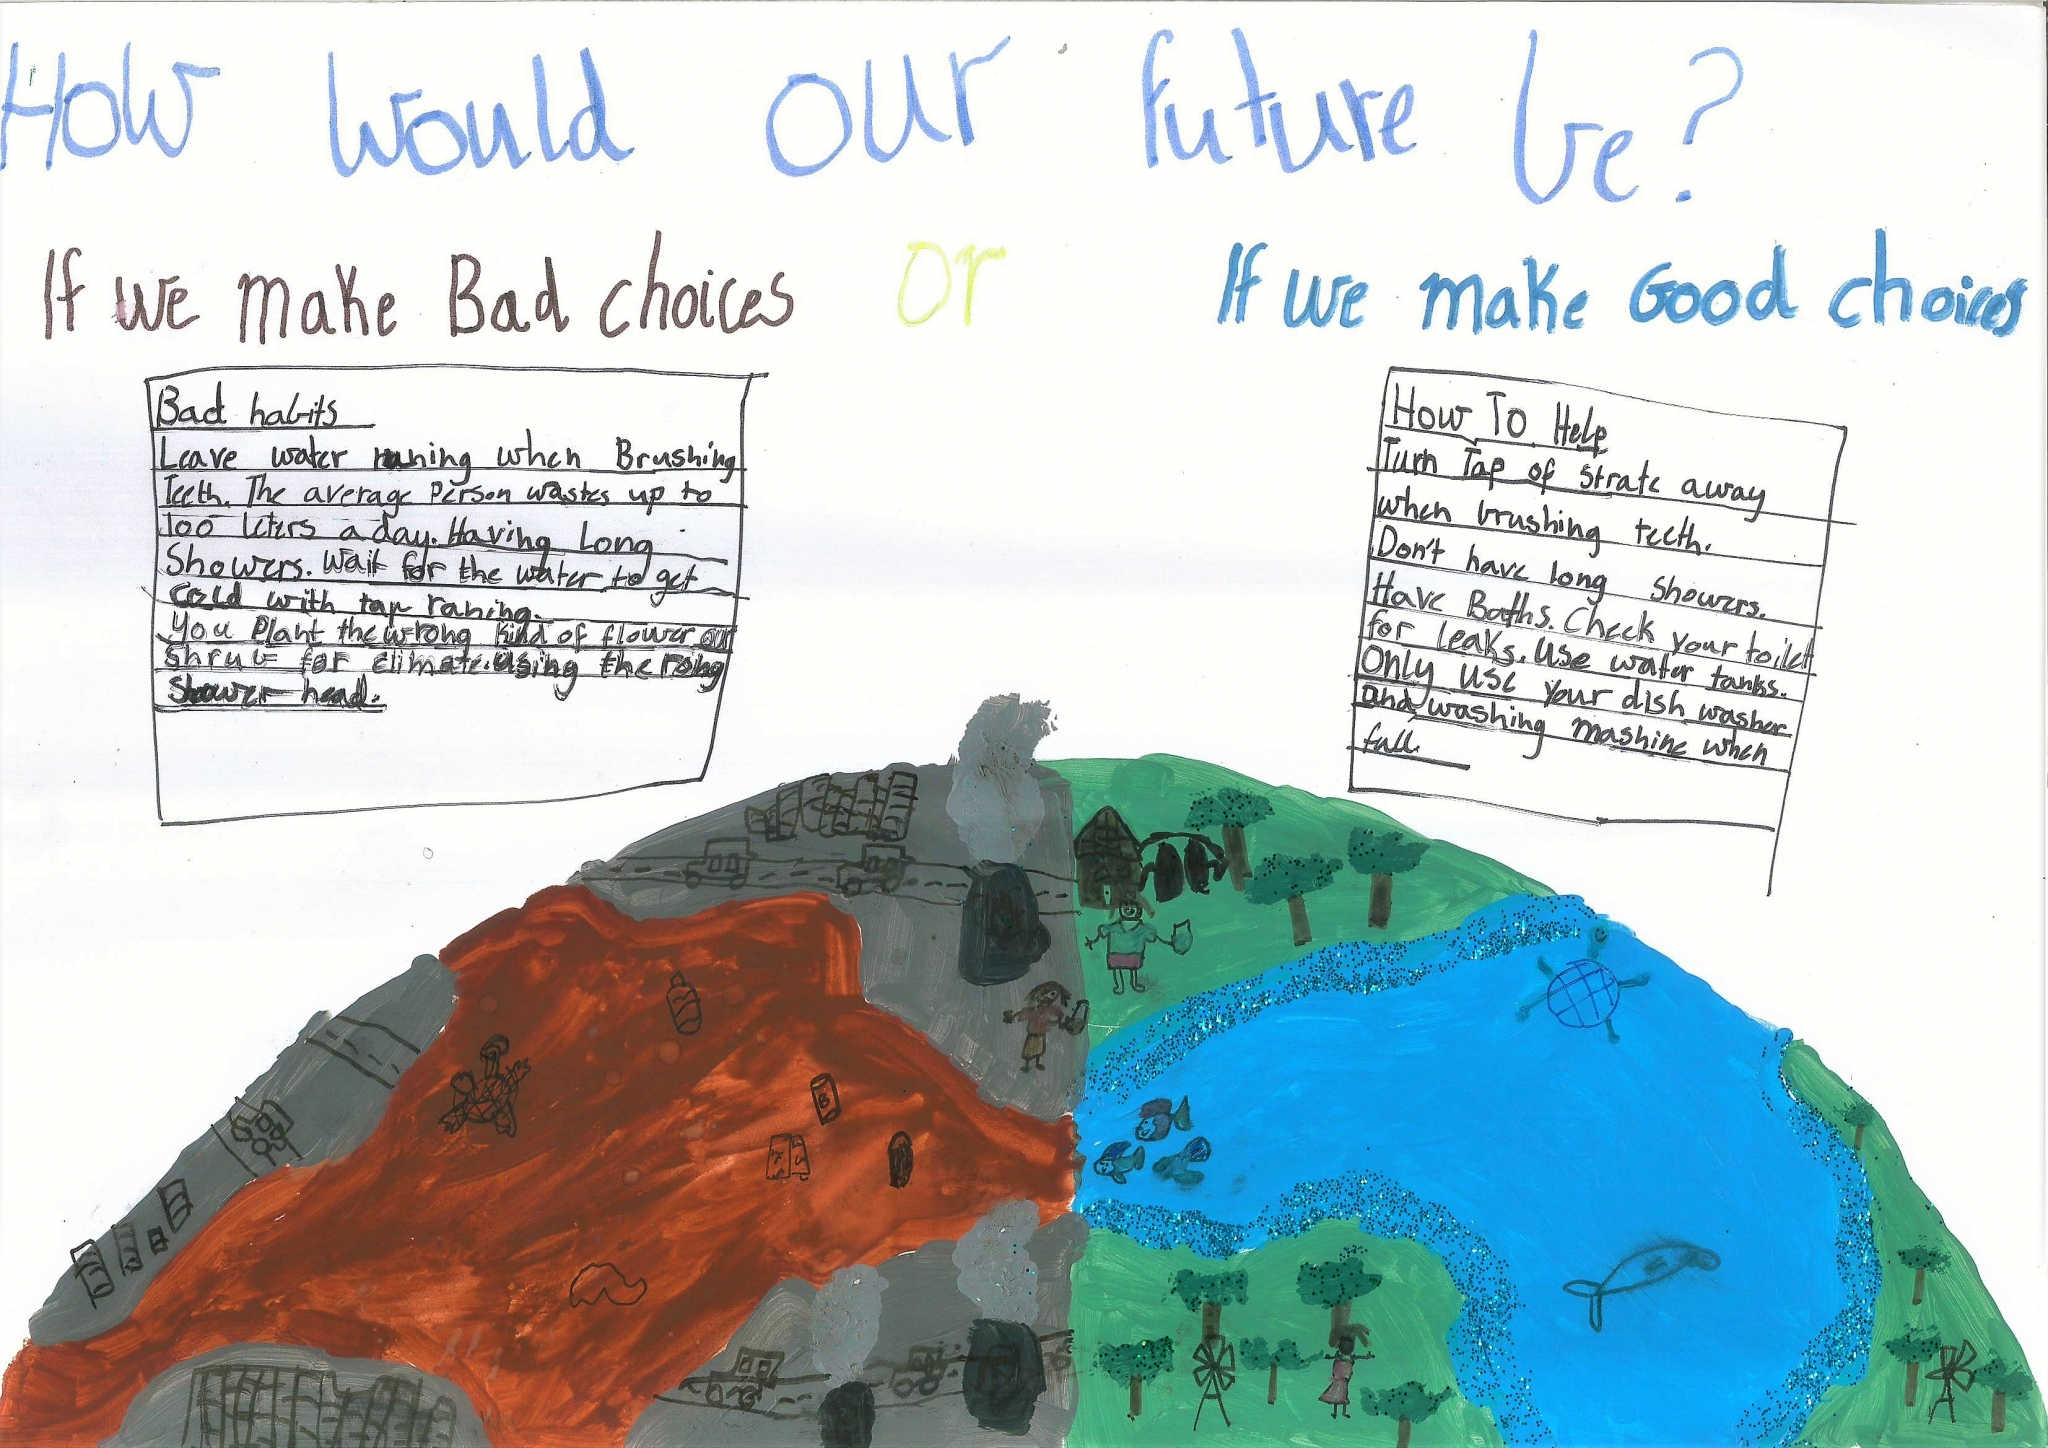 How would our future be?
If we make Bad choices or If we make Good choices
Bad habits
Leave water runing when Brushing
Teeth. The average person wastes up to
100 leters a day. Having Long
Showers. Wait for the water to get
cold with tap raning.
You Plant the wrong kind of flower our
shrub for climate. Using the rong
Shower head.
How To Help
Turn Tap of strate away
when brushing teeth.
Don't have long showers.
Have Baths. Check your toilet
for leaks. Use water tanks.
Only use your dish washer
and washing mashine when
full.